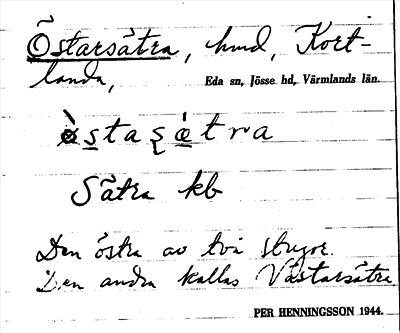 Östarsätra, hmd, Kort-
landa,
Eda sn, Jösse hd, Värmlands län.
Sätra kb
Den östra av två stugor.
Den andra kallas Västarsätra
PER HENNINGSSON 1944.